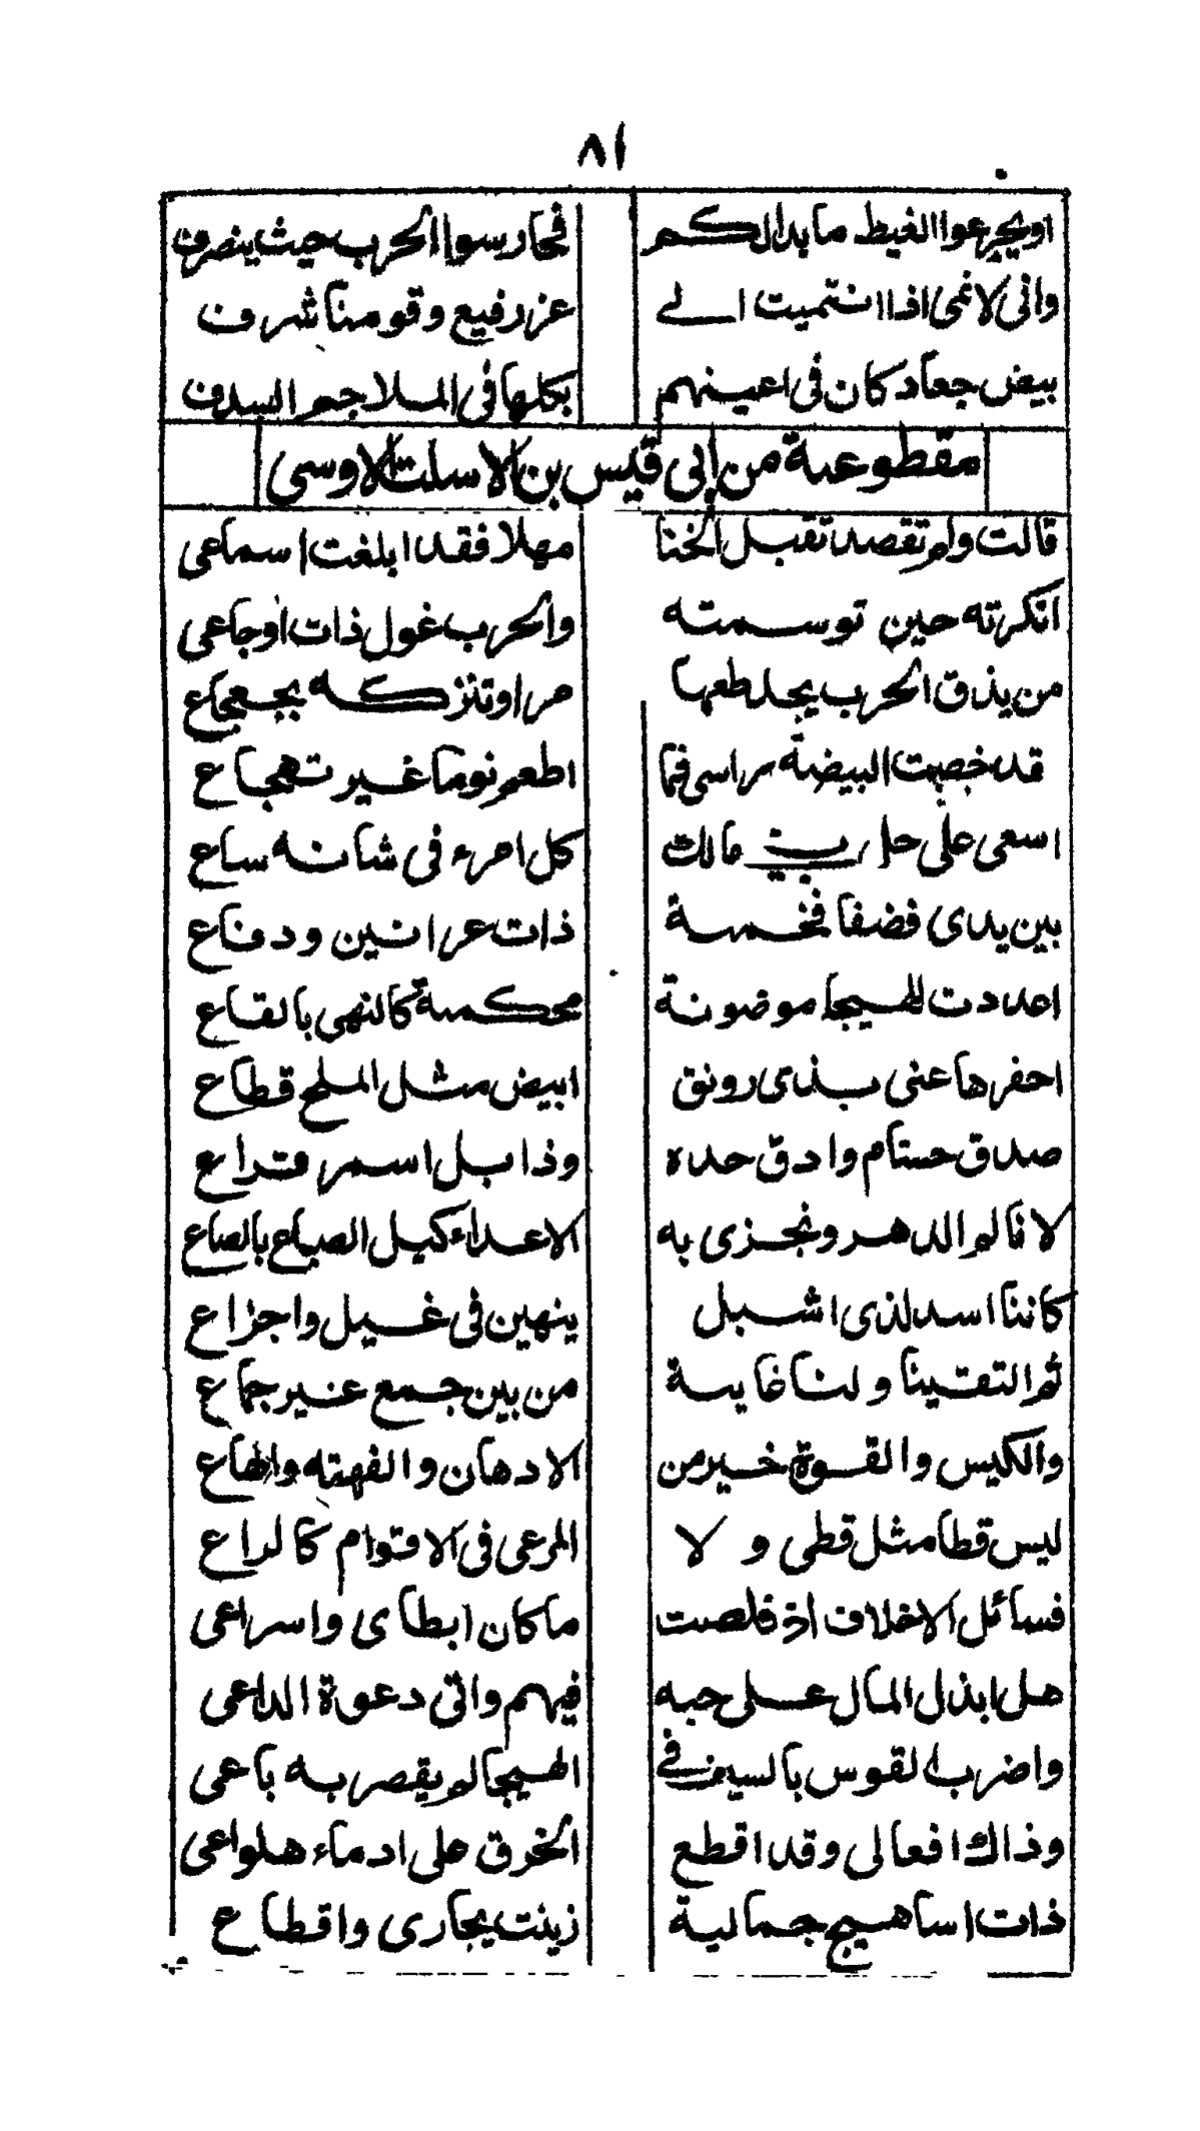 ٨١
او يجرعوا الغيظ ما بدا لكم فحارسوا الحرب حيث ينصرف
وانى لانمى اذا انتميت الے عز رفيع وقومنا شرف
بيض جعاد كان فى اعينهم بكلها فى الملاجم السدف
مقطوعة من ابى قيس بن الاسلت الاوسى
قالت ولم تقصد تقبل الخنا مهلا فقد ابلغت اسماعى
انكرته حين توسمته والحرب غول ذات اوجاعى
من يذق الحرب يجد طعمها مرا وتنزكه بجعجاع
قد خصت البيضة راسى فما اطعم نوما غير تهجاع
اسعى على حل بنے مالك كل امرء فى شانه ساع
بين يدى فضفا فخمسة ذات عرانين ودفاع
اعددت للهيجا موضونة محكمة كالنهى بالقاع
احفرها عنى بذى رونق ابيض مثل الملح قطاع
صدق حسام وادق حده وذابل اسمر قراع
لا نالم الدهر ونجزى به الاعداء كيل الصاع بالصاع
كاننا اسد لذى اشبل ينهين فى غيل واجزاع
ثم التقينا ولنا غاية من بين جمع غير جماع
والكيس والقوة خير من الادهان والفهته والهاع
ليس قطا مثل قطى و لا المرعى فى الاقوام كالراع
فسائل الاخلاف اذ قلصت ما كان ابطاى واسراعى
هل ابذل المال على حبه فيهم واتى دعوة الداعى
واضرب القوس بالسيف فے الهيجا لم يقصر به باعى
وذاك افعالى وقد اقطع الخرق على ادماء هلواعى
ذات اساهيج جمالية زينت بحارى واقطاع